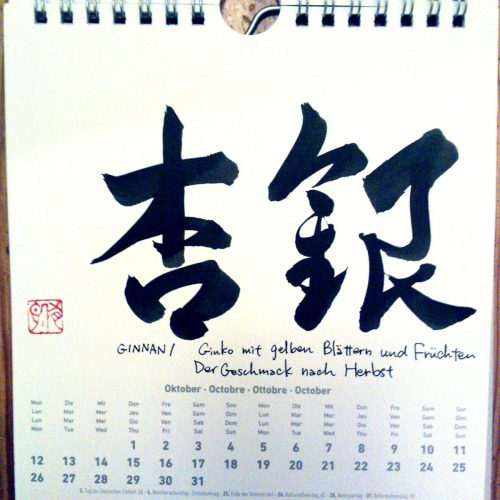 銀杏
GINNAN / Ginko mit gelben Blättern und Früchten
Der Geschmack nach Herbst
Oktober · Octobre · Ottobre · October
Mon Die Mit Don Fre Sam Son Mon Die Mit Don Fre Sam Son
Lun Mar Mer Jeu Ven Sam Dim Lun Mar Mer Jeu Ven Sam Dim
Lun Mar Mer Gio Ven Sab Dom Lun Mar Mer Gio Ven Sab Dom
Mon Tue Wed Thu Fri Sat Sun Mon Tue Wed Thu Fri Sat Sun
1 2 3 4 5 6 7 8 9 10 11
12 13 14 15 16 17 18 19 20 21 22 23 24 25
26 27 28 29 30 31
3. Tag der Deutschen Einheit 25. Ende der Sommerzeit 26. Nationalfeiertag 31. Reformationstag